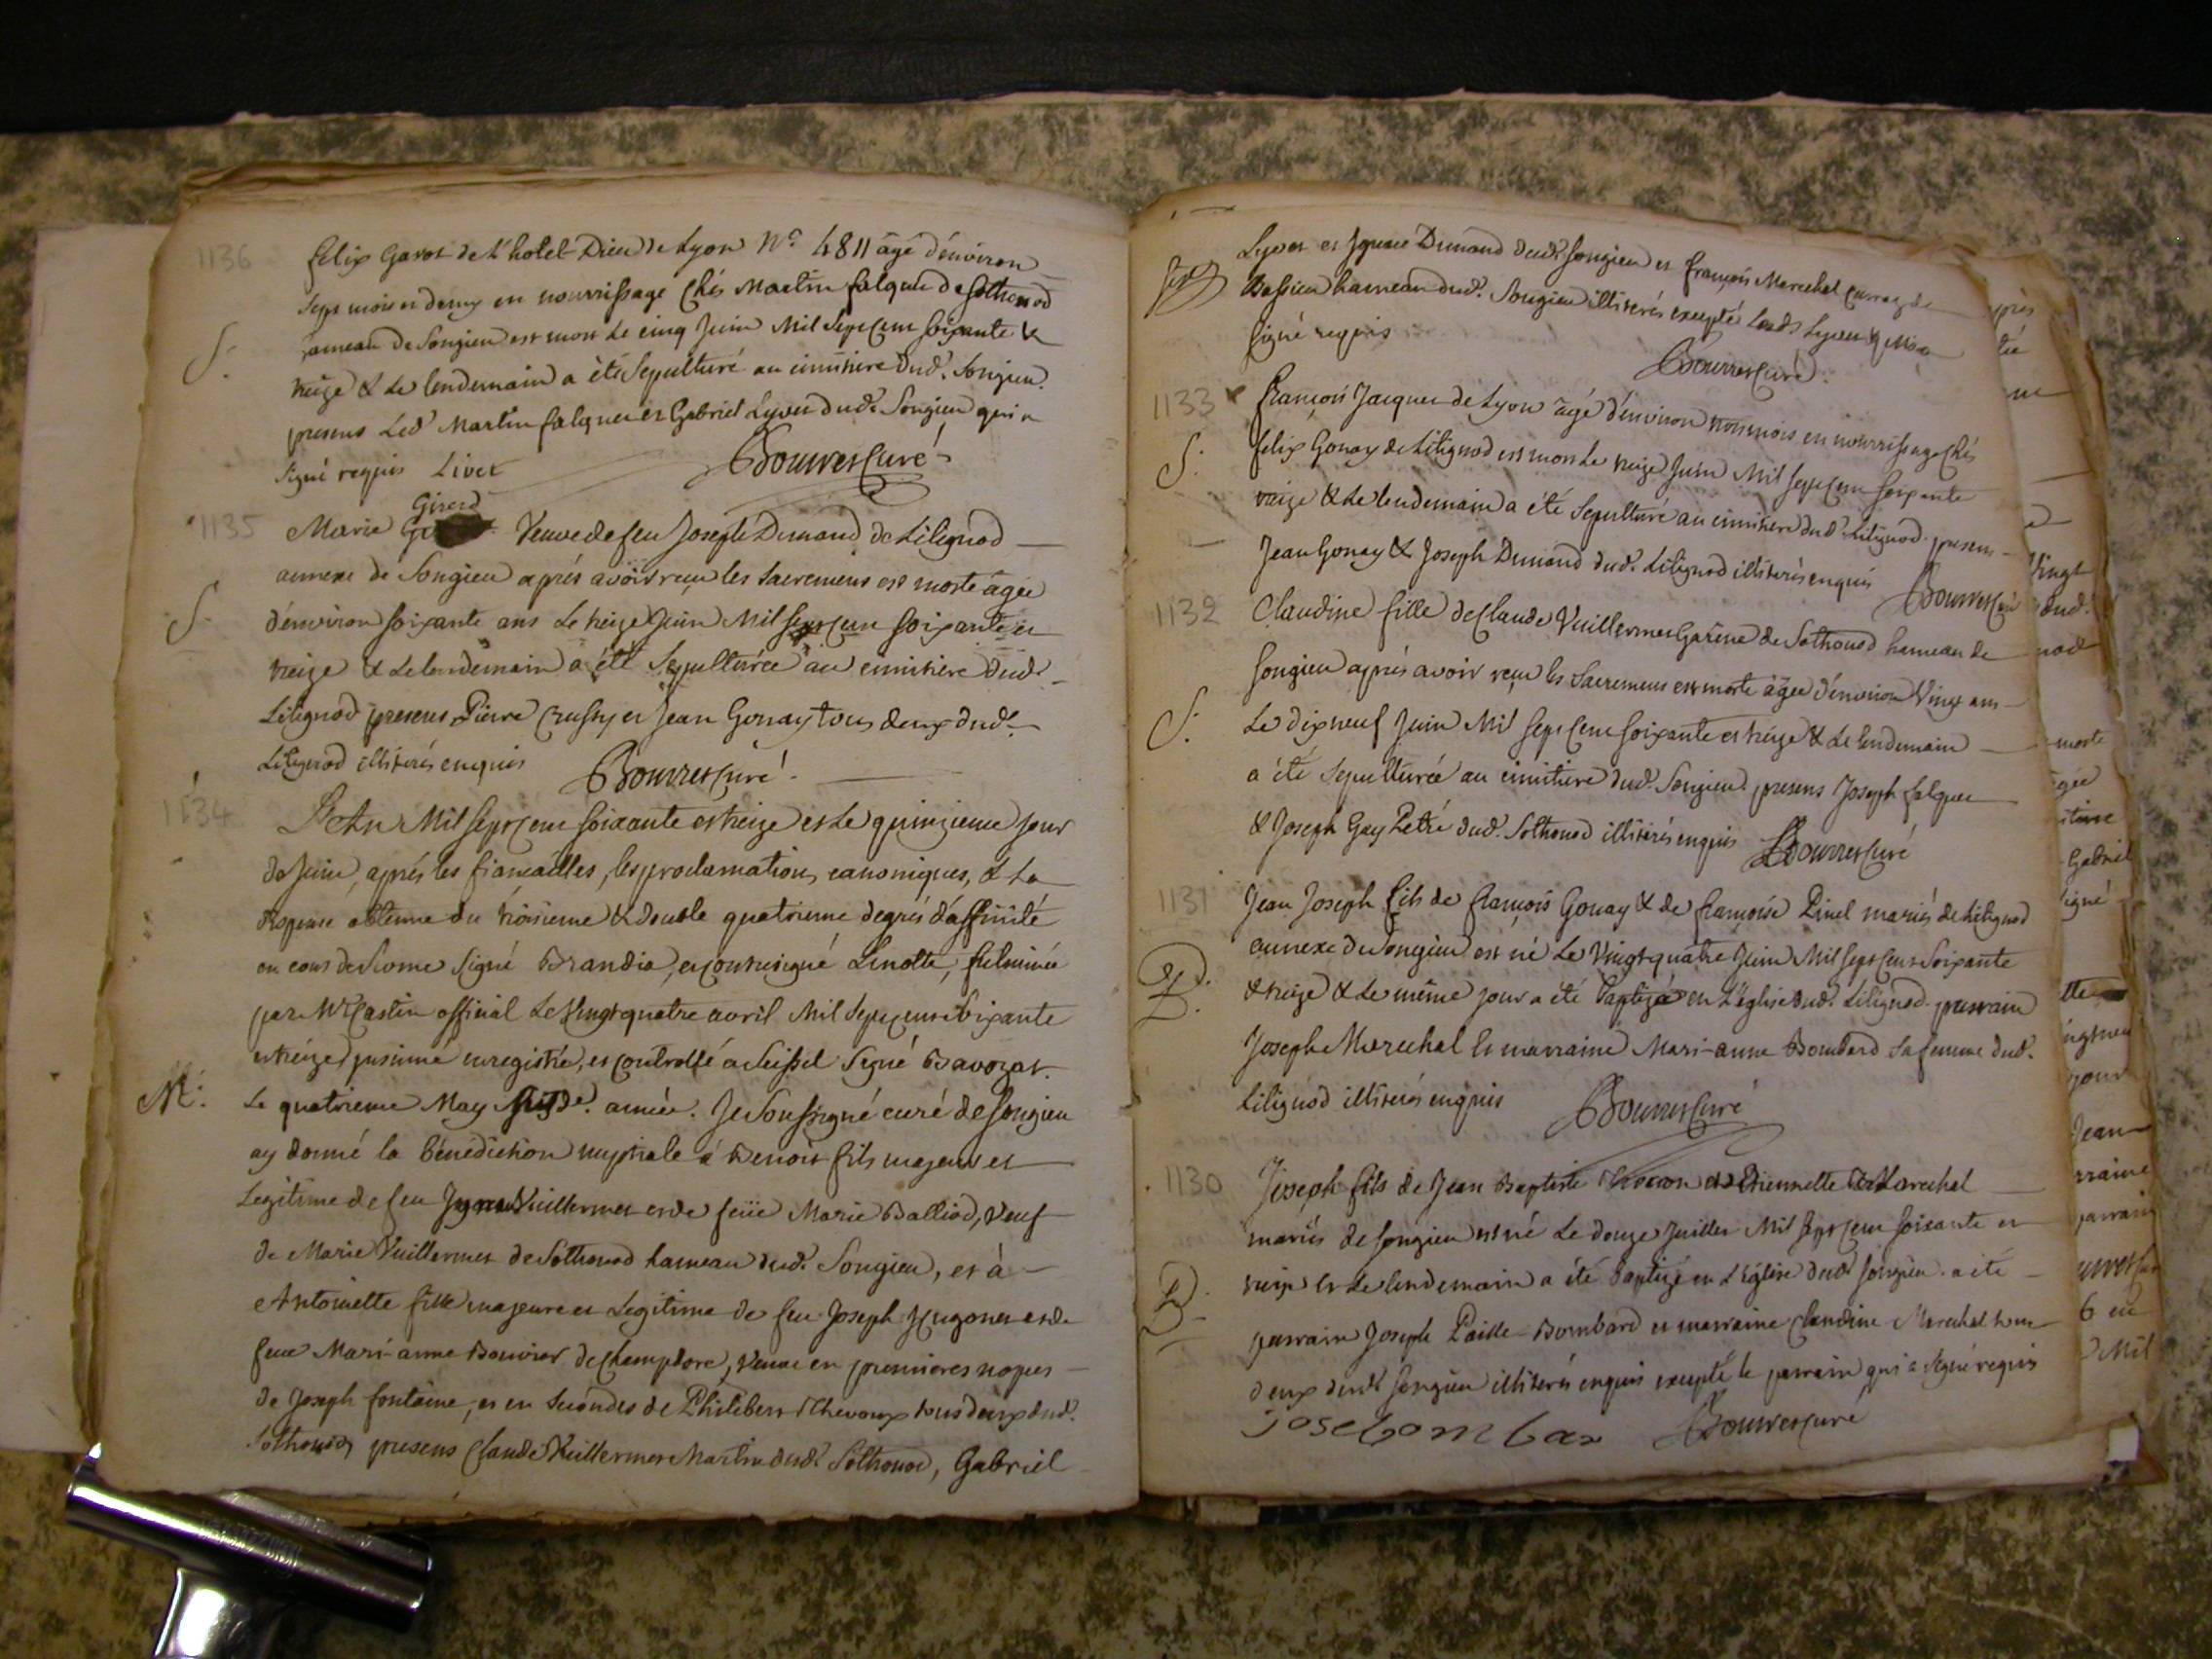 1136 felix Garot de L'hotel-Dieu de Lyon N° 4811 âgé d'environ
sept mois et demy en nourrissage chés Martin falquet de Sothonod
hameau de Songieu est mort le cinq Juin Mil Sept Cent Soixante &
S. treize & le lendemain a été sepulturé au cimitiere dud. Songieu.
presens Led Martin falquet et Gabriel Lyvet dud. Songieu qui a
signé requis Livet Bouvret Curé
Girerd
1135 Marie Veuve de feu Joseph Dumand de Lilignod
annexe de Songieu aprés avoir reçu les Sacremens est morte âgée
S. d'environ soixante ans le treize Juin Mil sept Cent soixante et
treize & le lendemain a été Sepulturée au cimitiere dud.
Lilignod presens Pierre et Jean Gonay tous deux dud.
Lilignod illiterés enquis Bouvret Curé
1134 L'An Mil Sept Cent soixante et treize et le quinzieme jour
de Juin, aprés les fiançailles, les proclamations canoniques, & la
dispense obtenue du troisieme & double quatrieme degrés d'affinité
en cour de Rome signé Brandia, et contresigné Linotte, fulminée
par Mr Castin official Le Vingt quatre avril Mil Sept cent Soixante
et treize insinué enregistré, et controllé a Seissel Signé Bavozat.
M. Le quatrieme May année. Je Soussigné curé de Songieu
ay donné la bénédiction nuptiale à Benoit fils majeur et
Legitime de feu Vuillermet et de feüe Marie Balliod, veuf
de Marie Vuillermet de Sothonod hameau dud. Songieu, et à
Antoinette fille majeure et Legitime de feu Joseph Hugonet et de
feue Mari-anne Bouvier de Champdore, veuve en premieres nopces
de Joseph fontaine, et en Secondes de Philibert Thevoux tous deux dud.
Sothonod, presens Claude Vuillermet Martin dud. Sothonod, Gabriel
Lyvet et Dumand dud. Songieu et françois Marechal de
Bassieu hameau dud. Songieu illiterés excepté Lyvet
signé requis
Bouvret Curé
1133 François Jacques de Lyon âgé d'environ mois en nourrissage chés
S. felix Gonay de Lilignod est mort le treize Juin Mil Sept Cent Soixante
treize & le lendemain a été Sepulturé au cimitiere dud. Lilignod presens
Jean Gonay & Joseph Dumand dud. Lilignod illiterés enquis Bouvret Curé
1132 Claudine fille de Claude Vuillermet Garine de Sothonod hameau de
Songieu aprés avoir reçu les Sacremens est morte âgée d'environ Vingt ans
S. Le dix neuf Juin Mil Sept Cent Soixante et treize & le lendemain
a été Sepulturée au cimitiere dud. Songieu. presens Joseph falquet
& Joseph Gay Petré dud. Sothonod illiterés enquis Bouvret Curé
1131 Jean Joseph fils de françois Gonay & de françoise Pinel mariés de Lilignod
annexe de Songieu est né Le Vingt quatre Juin Mil Sept Cent Soixante
B. & treize & le même jour a été Baptizé en L'église dud. Lilignod. parrain
Joseph Marechal la marraine Mari-anne Bombard sa femme dud.
Lilignod illiterés enquis Bouvret Curé
1130 Joseph fils de Jean Baptiste et d'Etiennette Marechal
mariés de Songieu est né Le douze Juillet Mil Sept Cent soixante et
B. treize et le lendemain a été Baptizé en L'église dud Songieu. a été
parrain Joseph Paille-Bombard et marraine Claudine Marechal tous
deux dud. Songieu illiterés enquis excepté le parrain qui a signé requis
Bouvret Curé